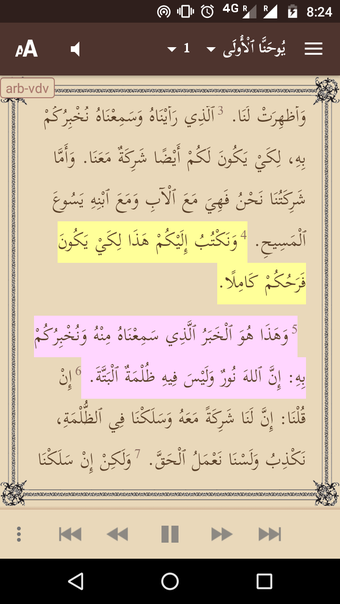 4G R R 8:24
AA 1 يُوحَنَّا ٱلْأُولَى
arb-vdv
وَأُظْهِرَتْ لَنَا. 3 ٱلَّذِي رَأَيْنَاهُ وَسَمِعْنَاهُ نُخْبِرُكُمْ
بِهِ، لِكَيْ يَكُونَ لَكُمْ أَيْضًا شَرِكَةٌ مَعَنَا. وَأَمَّا
شَرِكَتُنَا نَحْنُ فَهِيَ مَعَ ٱلْآبِ وَمَعَ ٱبْنِهِ يَسُوعَ
ٱلْمَسِيحِ. 4 وَنَكْتُبُ إِلَيْكُمْ هَذَا لِكَيْ يَكُونَ
فَرَحُكُمْ كَامِلًا.
5 وَهَذَا هُوَ ٱلْخَبَرُ ٱلَّذِي سَمِعْنَاهُ مِنْهُ وَنُخْبِرُكُمْ
بِهِ: إِنَّ ٱللهَ نُورٌ وَلَيْسَ فِيهِ ظُلْمَةٌ ٱلْبَتَّةَ. 6 إِنْ
قُلْنَا: إِنَّ لَنَا شَرِكَةً مَعَهُ وَسَلَكْنَا فِي ٱلظُّلْمَةِ،
نَكْذِبُ وَلَسْنَا نَعْمَلُ ٱلْحَقَّ. 7 وَلَكِنْ إِنْ سَلَكْنَا